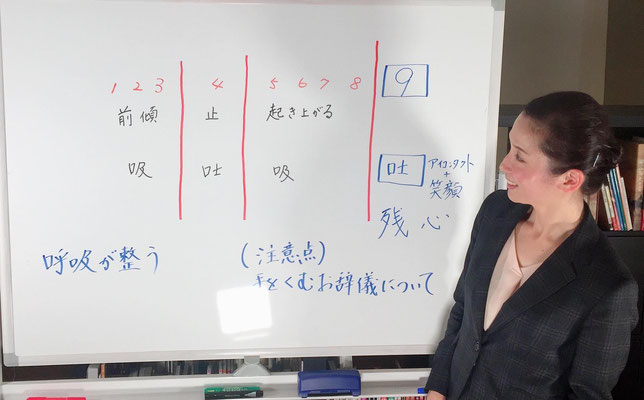 1 2 3 4 5 6 7 8 9
前傾 止 起き上がる
吸 吐 吸 吐 アイコンタクト
+
笑顔
残心
呼吸が整う (注意点)
手をくむお辞儀について